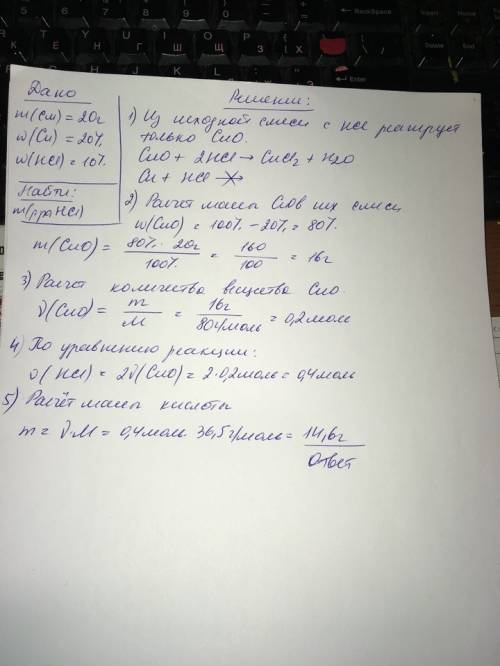 Дано
m(см) = 20г
w(Cu) = 20%
w(HCl) = 10%
Найти:
m(р-ра HCl)
Решение:
1) Из исходной смеси с HCl реагирует
только CuO.
CuO + 2HCl → CuCl2 + H2O
Cu + HCl ↛
2) Расчет массы CuO в их смеси
w(CuO) = 100% - 20% = 80%
m(CuO) = 80% · 20г / 100% = 160 / 100 = 16г
3) Расчет количества вещества CuO.
ν(CuO) = m / M = 16г / 80г/моль = 0,2 моль
4) По уравнению реакции:
ν(HCl) = 2ν(CuO) = 2·0,2моль = 0,4моль
5) Расчёт массы кислоты
m = ν·M = 0,4моль · 36,5г/моль = 14,6г
Ответ